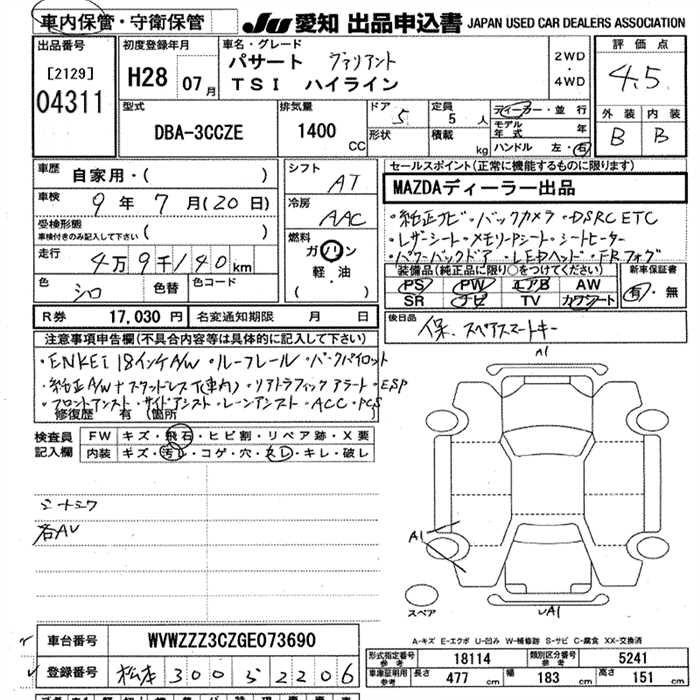 車内保管・守衛保管 JU 愛知 出品申込書 JAPAN USED CAR DEALERS ASSOCIATION
出品番号 初度登録年月 車名・グレード 評価点
[2129] H28 07月 パサート ヴァリアント 2WD・4WD 4.5
04311 TSI ハイライン
型式 排気量 ドア 定員 ディーラー・並行 外装 内装
DBA-3CCZE 1400 CC 5 5人 モデル年式 年 B B
形状 積載 kg ハンドル 左・右
車歴 自家用・( ) シフト AT セールスポイント(正常に機能するものに限ります)
MAZDAディーラー出品
車検 9年7月(20日) 冷房 AAC
・純正ナビ・バックカメラ・DSRC ETC
受検形態 車検付きのみ記入して下さい ( ) 燃料 ガソリン
・レザーシート・メモリPシート・シートヒーター
走行 4万9千140km 軽・油 ( )
・パワーバックドア・LEDヘッド・FRフォグ
装備品(純正品に限り○をつけてください) 新車保証書
色 シロ 色替 色コード PS PW エアB AW 有・無
SR ナビ TV カワシート
R券 17,030円 名変通知期限 月 日
後日品 保、スペアスマートキー
注意事項申告欄(不具合内容等は具体的に記入して下さい)
・ENKEI 18インチA/W・ルーフレール・パークパイロット
・純正A/W+スタッドレスT(車内)・リアトラフィックアラート・ESP
・フロントアシスト・サイドアシスト・レーンアシスト・ACC・PCS
修復歴 有 (箇所 )
検査員記入欄 FW キズ・飛石・ヒビ割・リペア跡・X要
内装 キズ・汚レ・コゲ・穴・スレ・キレ・破レ
シートシワ
各AU
A1
A1
UA1
スペア
A-キズ E-エクボ U-凹み W-補修跡 S-サビ C-腐食 XX-交換済
車台番号 WVWZZZ3CZGE073690
形式指定番号 参考 18114 類別区分番号 参考 5241
登録番号 松本 300 ふ 2206
車庫証明用 参考 長さ 477cm 幅 183cm 高さ 151cm